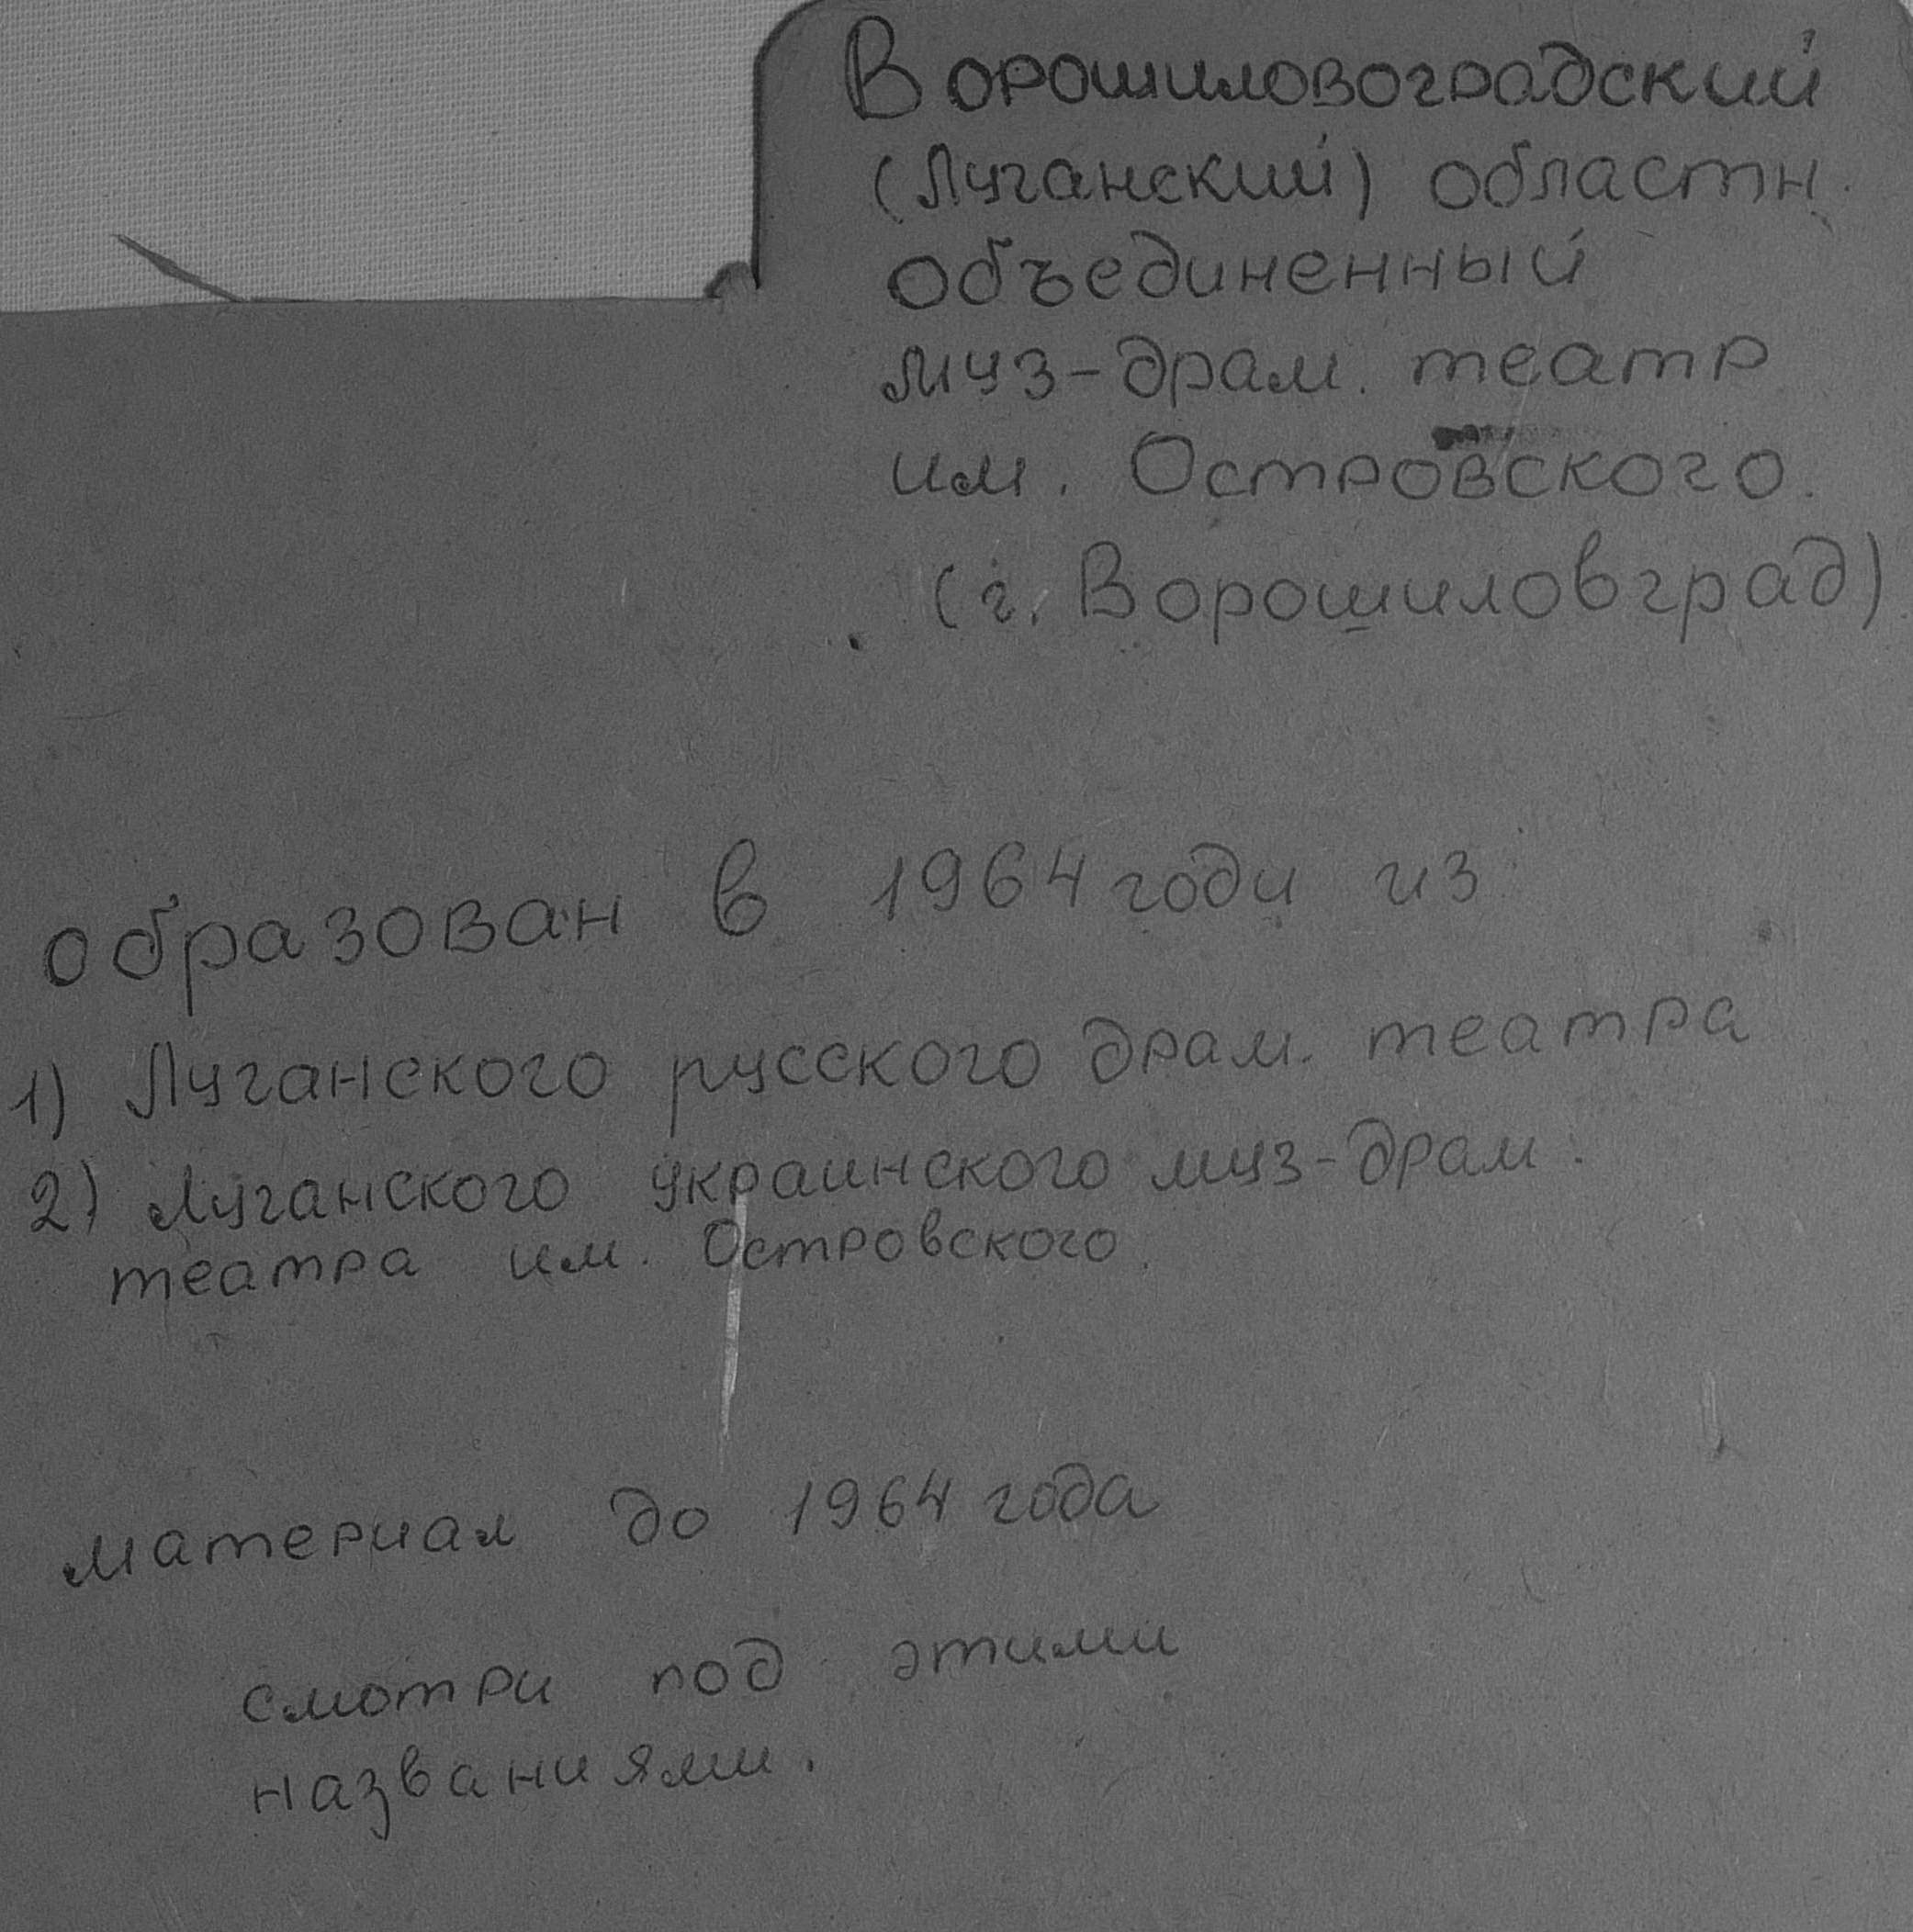 Ворошиловоградский
(Луганский) областн.
объединенный
муз-драм. театр
им. Островского.
(г. Ворошиловград)
образован в 1964 году из
1) Луганского русского драм. театра
2) Луганского украинского муз-драм.
театра им. Островского.
материал до 1964 года
смотри под этими
названиями.